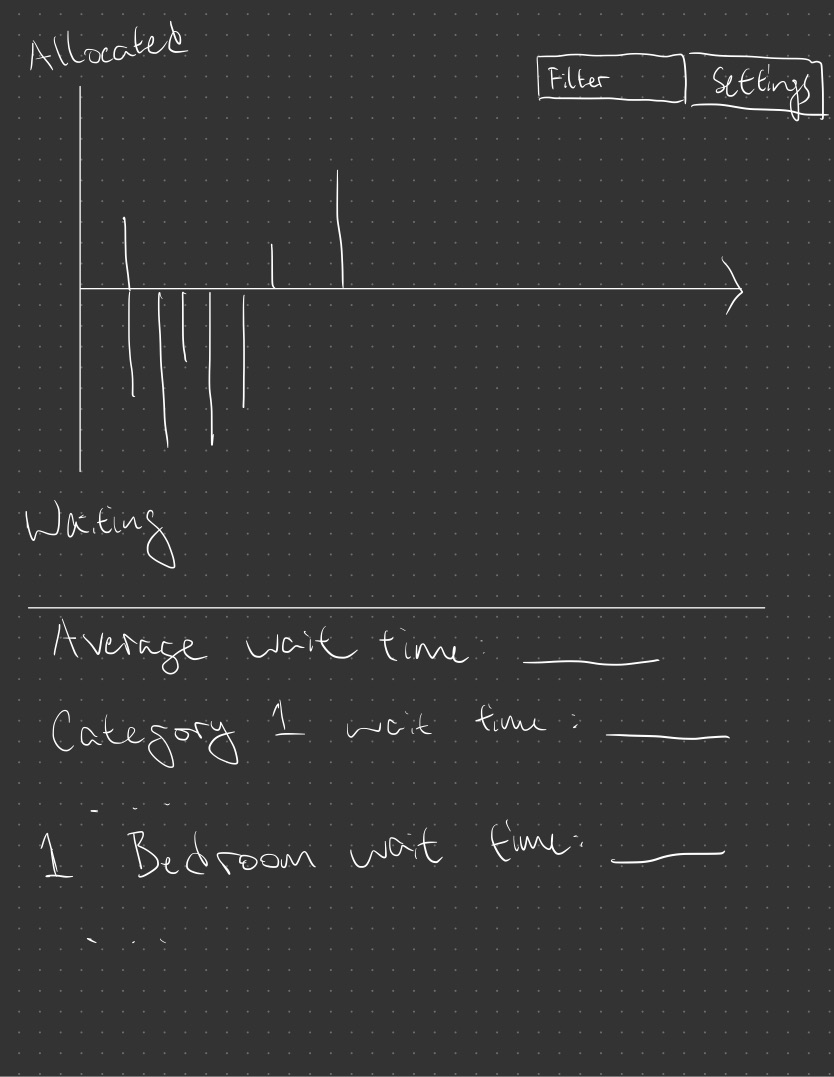 Allocated
Filter
Settings
Waiting
Average wait time:
Category 1 wait time:
...
1 Bedroom wait time:
...